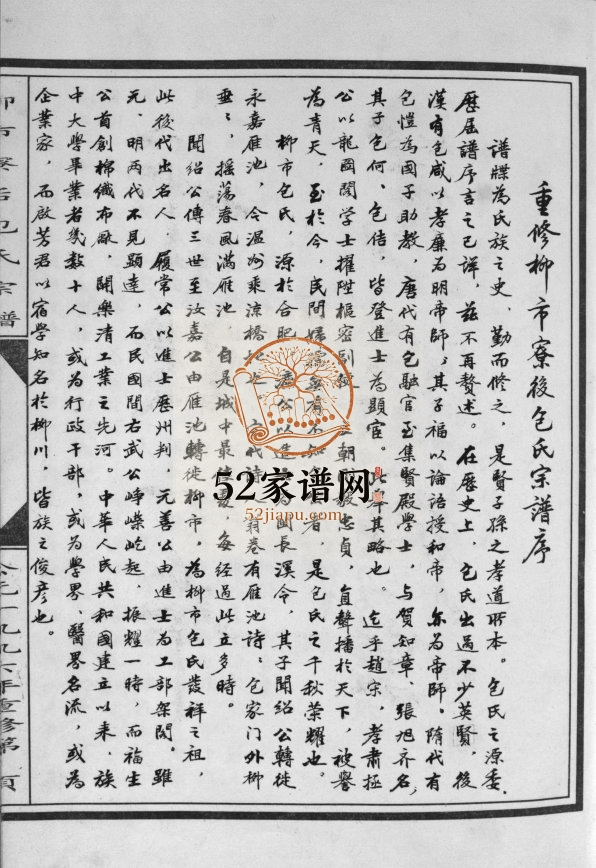 重修柳市寮後包氏宗譜序
譜牒為氏族之史，勤而修之，是賢子孫之孝道所本。包氏之源委，
歷屆譜序言之已詳，茲不再贅述。在歷史上，包氏出過不少英賢，後
漢有包咸以孝廉為明帝師，其子福以論語授和帝，亦為帝師。隋代有
包愷為國子助教，唐代有包融官至集賢殿學士，与賀知章、張旭齊名，
其子包何、包佶，皆登進士為顯官。此舉其略也。迄乎趙宋，孝肅拯
公以龍圖閣學士擢陞樞密副 朝 忠貞，直聲播於天下，被譽
為青天，至於今，民間婦 者 是包氏之千秋榮耀也。
柳市包氏，源於合肥 公以進 閩長溪令，其子聞紹公轉徙
永嘉雁池，今温州乘涼橋 代 卷有雁池詩：包家門外柳
垂垂，摇荡春風滿雁池，自是城中最 每經過此立多時。
聞紹公傳三世至汝嘉公由雁池轉徙柳市，為柳市包氏發祥之祖，
此後代出名人 履常公以進士歷州判 元善公由進士為工部架閣。雖
元、明两代不見顯達，而民國間右武公崢嶸屹起，振耀一時，而福生
公首創棉織布廠，開樂清工業之先河。中華人民共和國建立以来，族
中大學畢業者幾數十人，或為行政干部，或為學界、醫界名流，或為
企業家，而啟芳君以宿學知名於柳川，皆族之俊彦也。
包氏宗譜
公元一九九六年重修第 頁
52家谱网
52jiapu.com